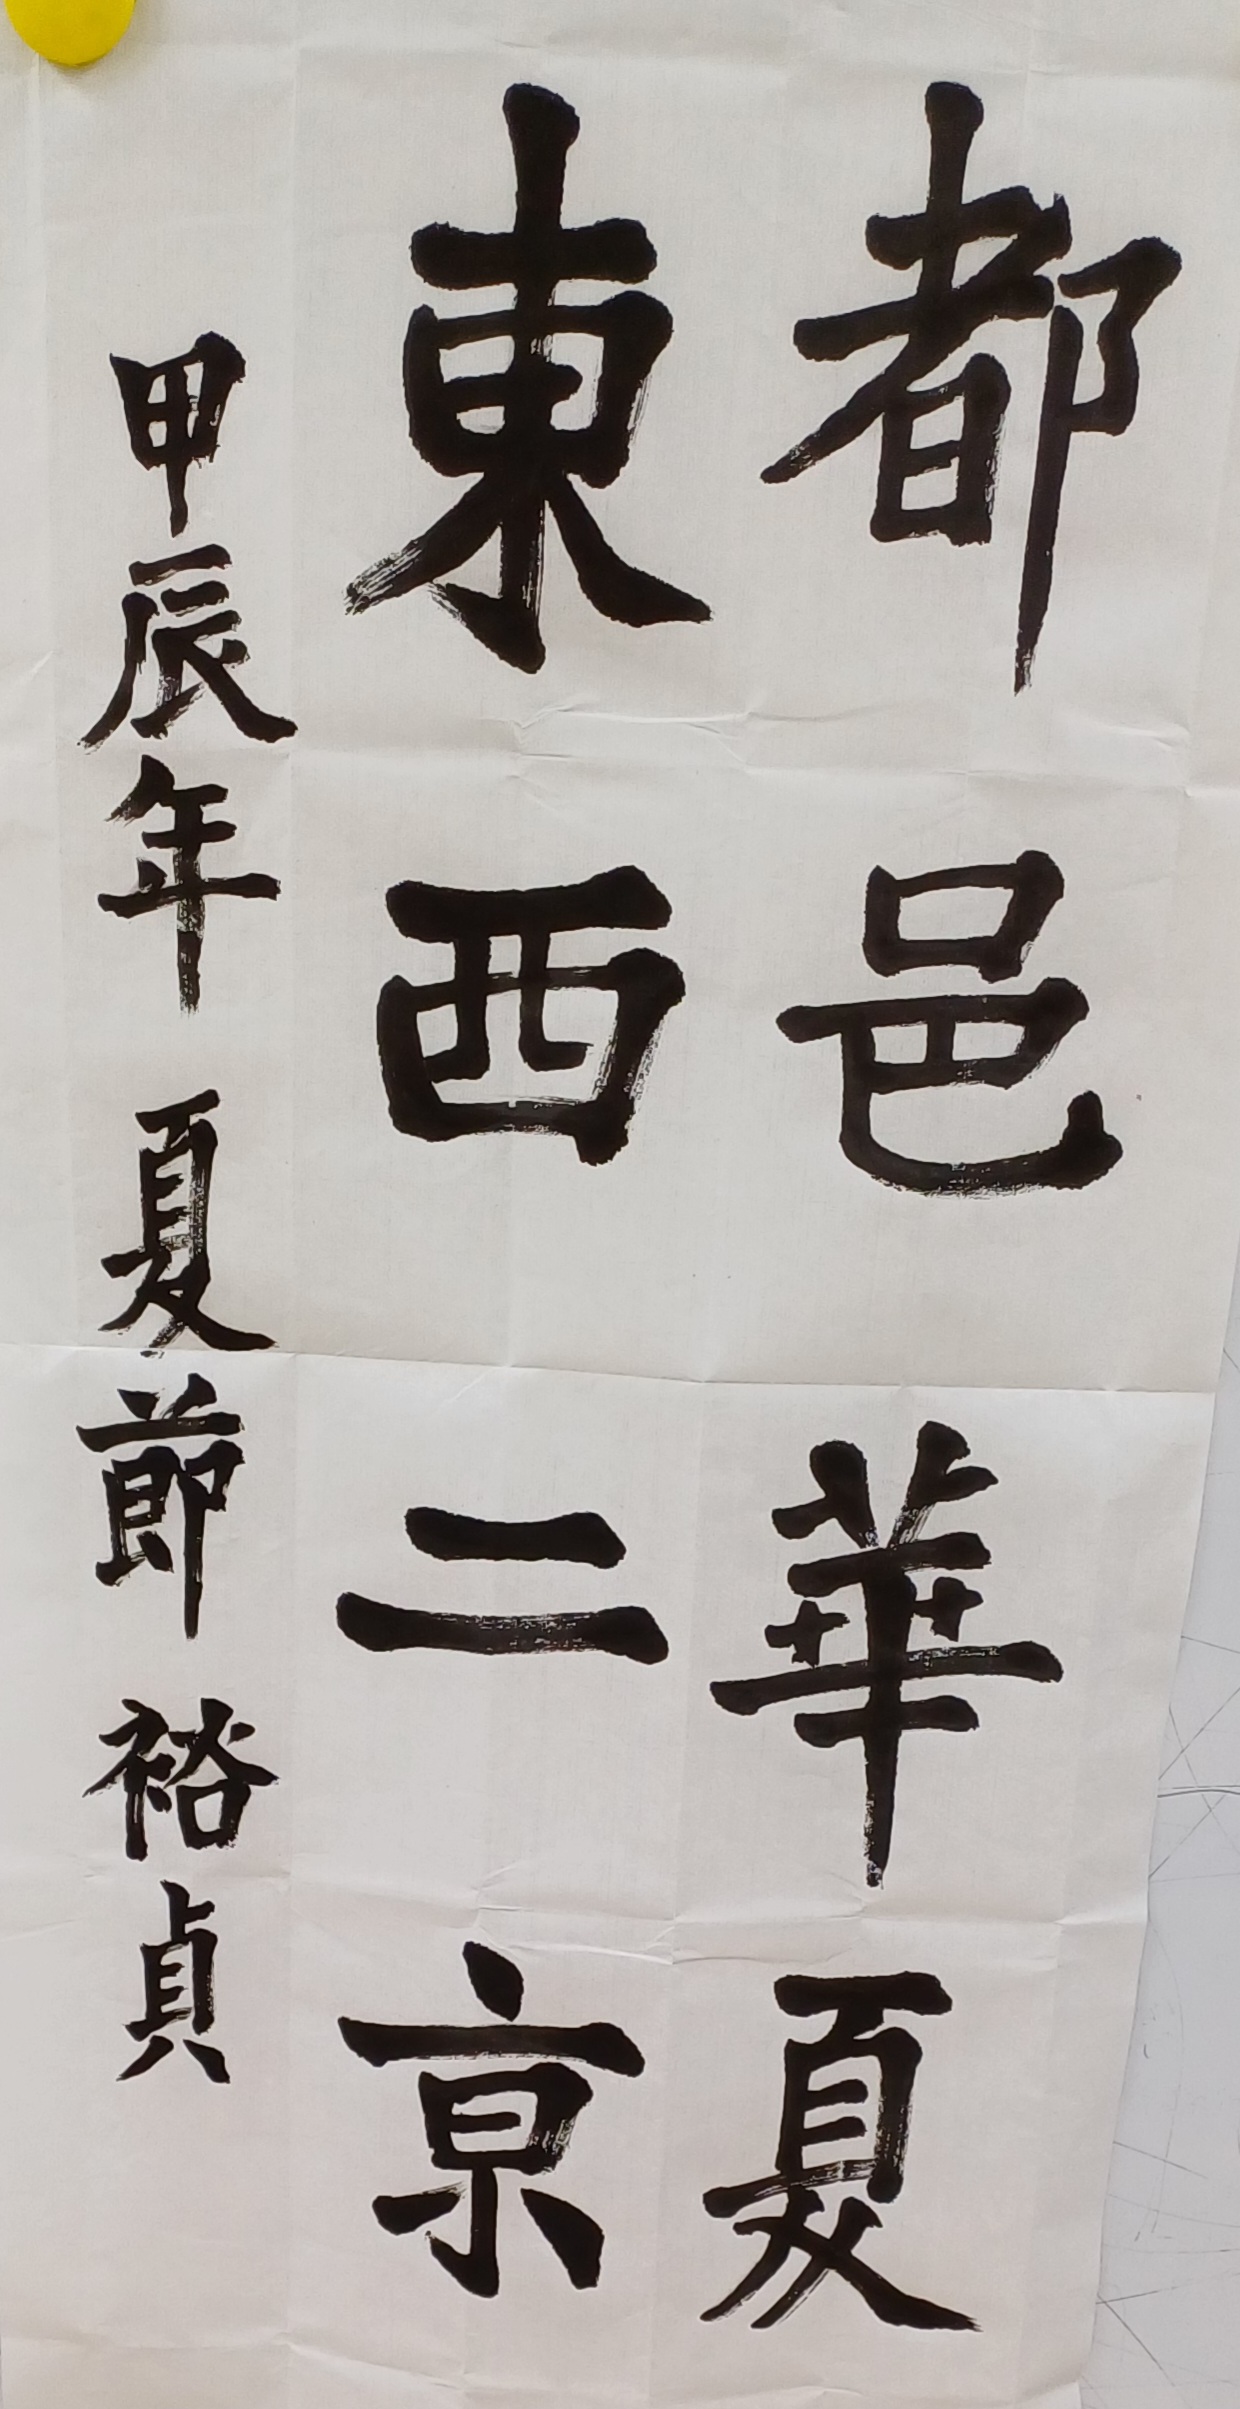 都邑華夏
東西二京
甲辰年夏節裕貞